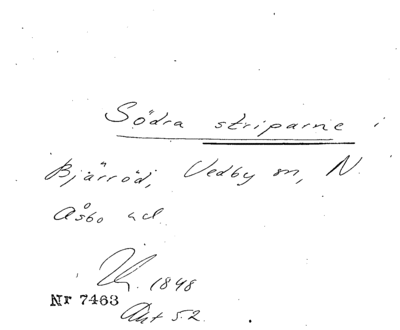 Södra striparne i
Bjärröd, Vedby sn, N.
Åsbo hd
1848
Nr 7463
Akt 52.